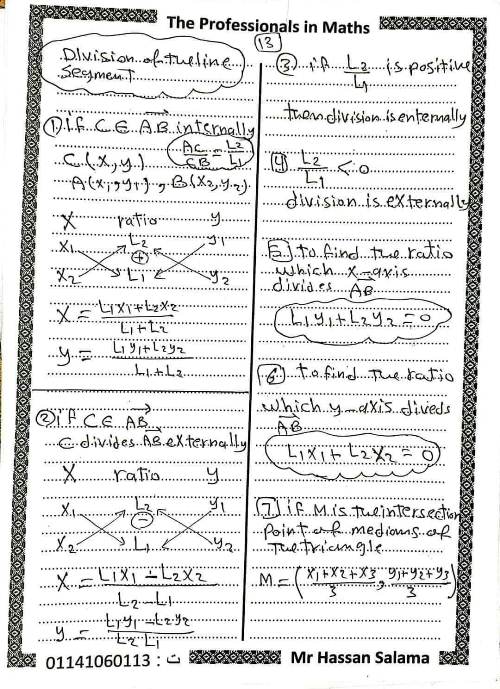 The Professionals in Maths
13
Division of the line
segment
① if C ∈ AB internally
AC/CB = L2/L1
C(x, y)
A(x1, y1), B(x2, y2)
X ratio y
x1 L2 y1
+
x2 L1 y2
X = L1x1+L2x2 / L1+L2
y = L1y1+L2y2 / L1+L2
② if C ∈ AB
C divides AB externally
X ratio y
x1 L2 y1
−
x2 L1 y2
X = L1x1 − L2x2 / L2 − L1
y = L1y1 − L2y2 / L2 L1
③ if L2/L1 is positive
then division is enternally
④ L2/L1 < 0
division is externally
5 to find the ratio
which x-axis
divides AB
L1y1 + L2y2 = 0
6 to find the ratio
which y-axis diveds
AB
L1x1 + L2x2 = 0
7 if M is the intersection
point of medians of
the triangle
M = (x1+x2+x3 / 3, y1+y2+y3 / 3)
01141060113 : ت
Mr Hassan Salama